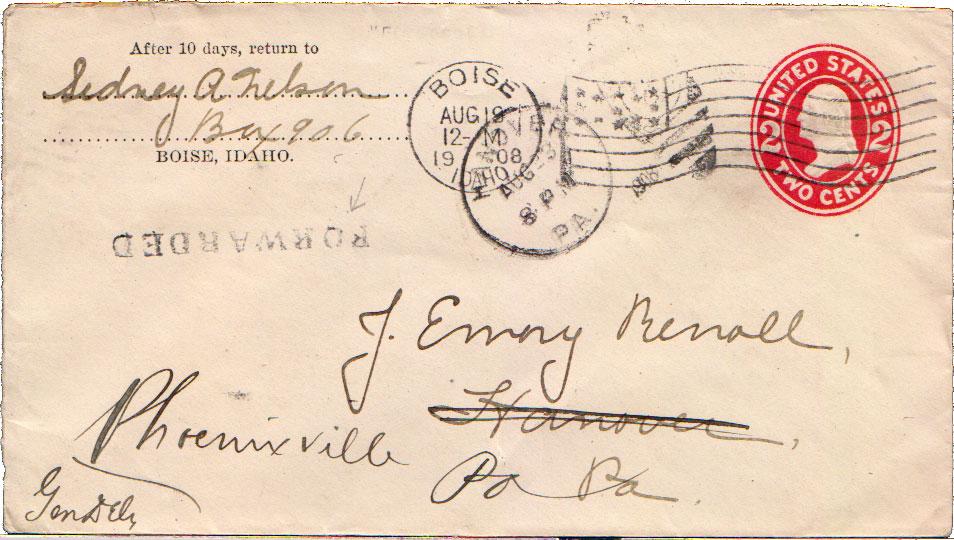 After 10 days, return to
Sidney A Nelson
Box 906
BOISE, IDAHO.
BOISE
AUG 19
12 - M
19 08
IDAHO
HANOVER
AUG 23
8 PM
1908
PA.
UNITED STATES
2 2
TWO CENTS
FORWARDED
J. Emory Renoll,
Hanover,
Phoenixville
Pa Pa.
Gen Del,